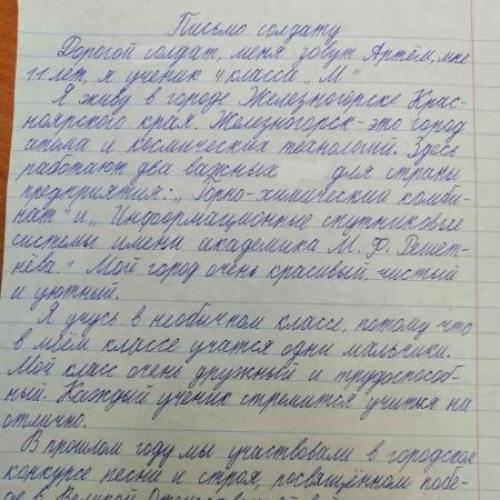 Письмо солдату
Дорогой солдат, меня зовут Артём, мне
11 лет, я ученик 4 класса „М"
Я живу в городе Железногорске Крас-
ноярского края. Железногорск - это город
атома и космических технологий. Здесь
работают два важных для страны
предприятия: „Горно-химический комби-
нат" и „Информационные спутниковые
системы имени академика М. Ф. Решет-
нёва." Мой город очень красивый, чистый
и уютный.
Я учусь в необычном классе, потому что
в моём классе учатся одни мальчики.
Мой класс очень дружный и трудоспособ-
ный. Каждый ученик стремится учиться на
отлично.
В прошлом году мы участвовали в городском
конкурсе песни и строя, посвящённом побе-
де в Великой